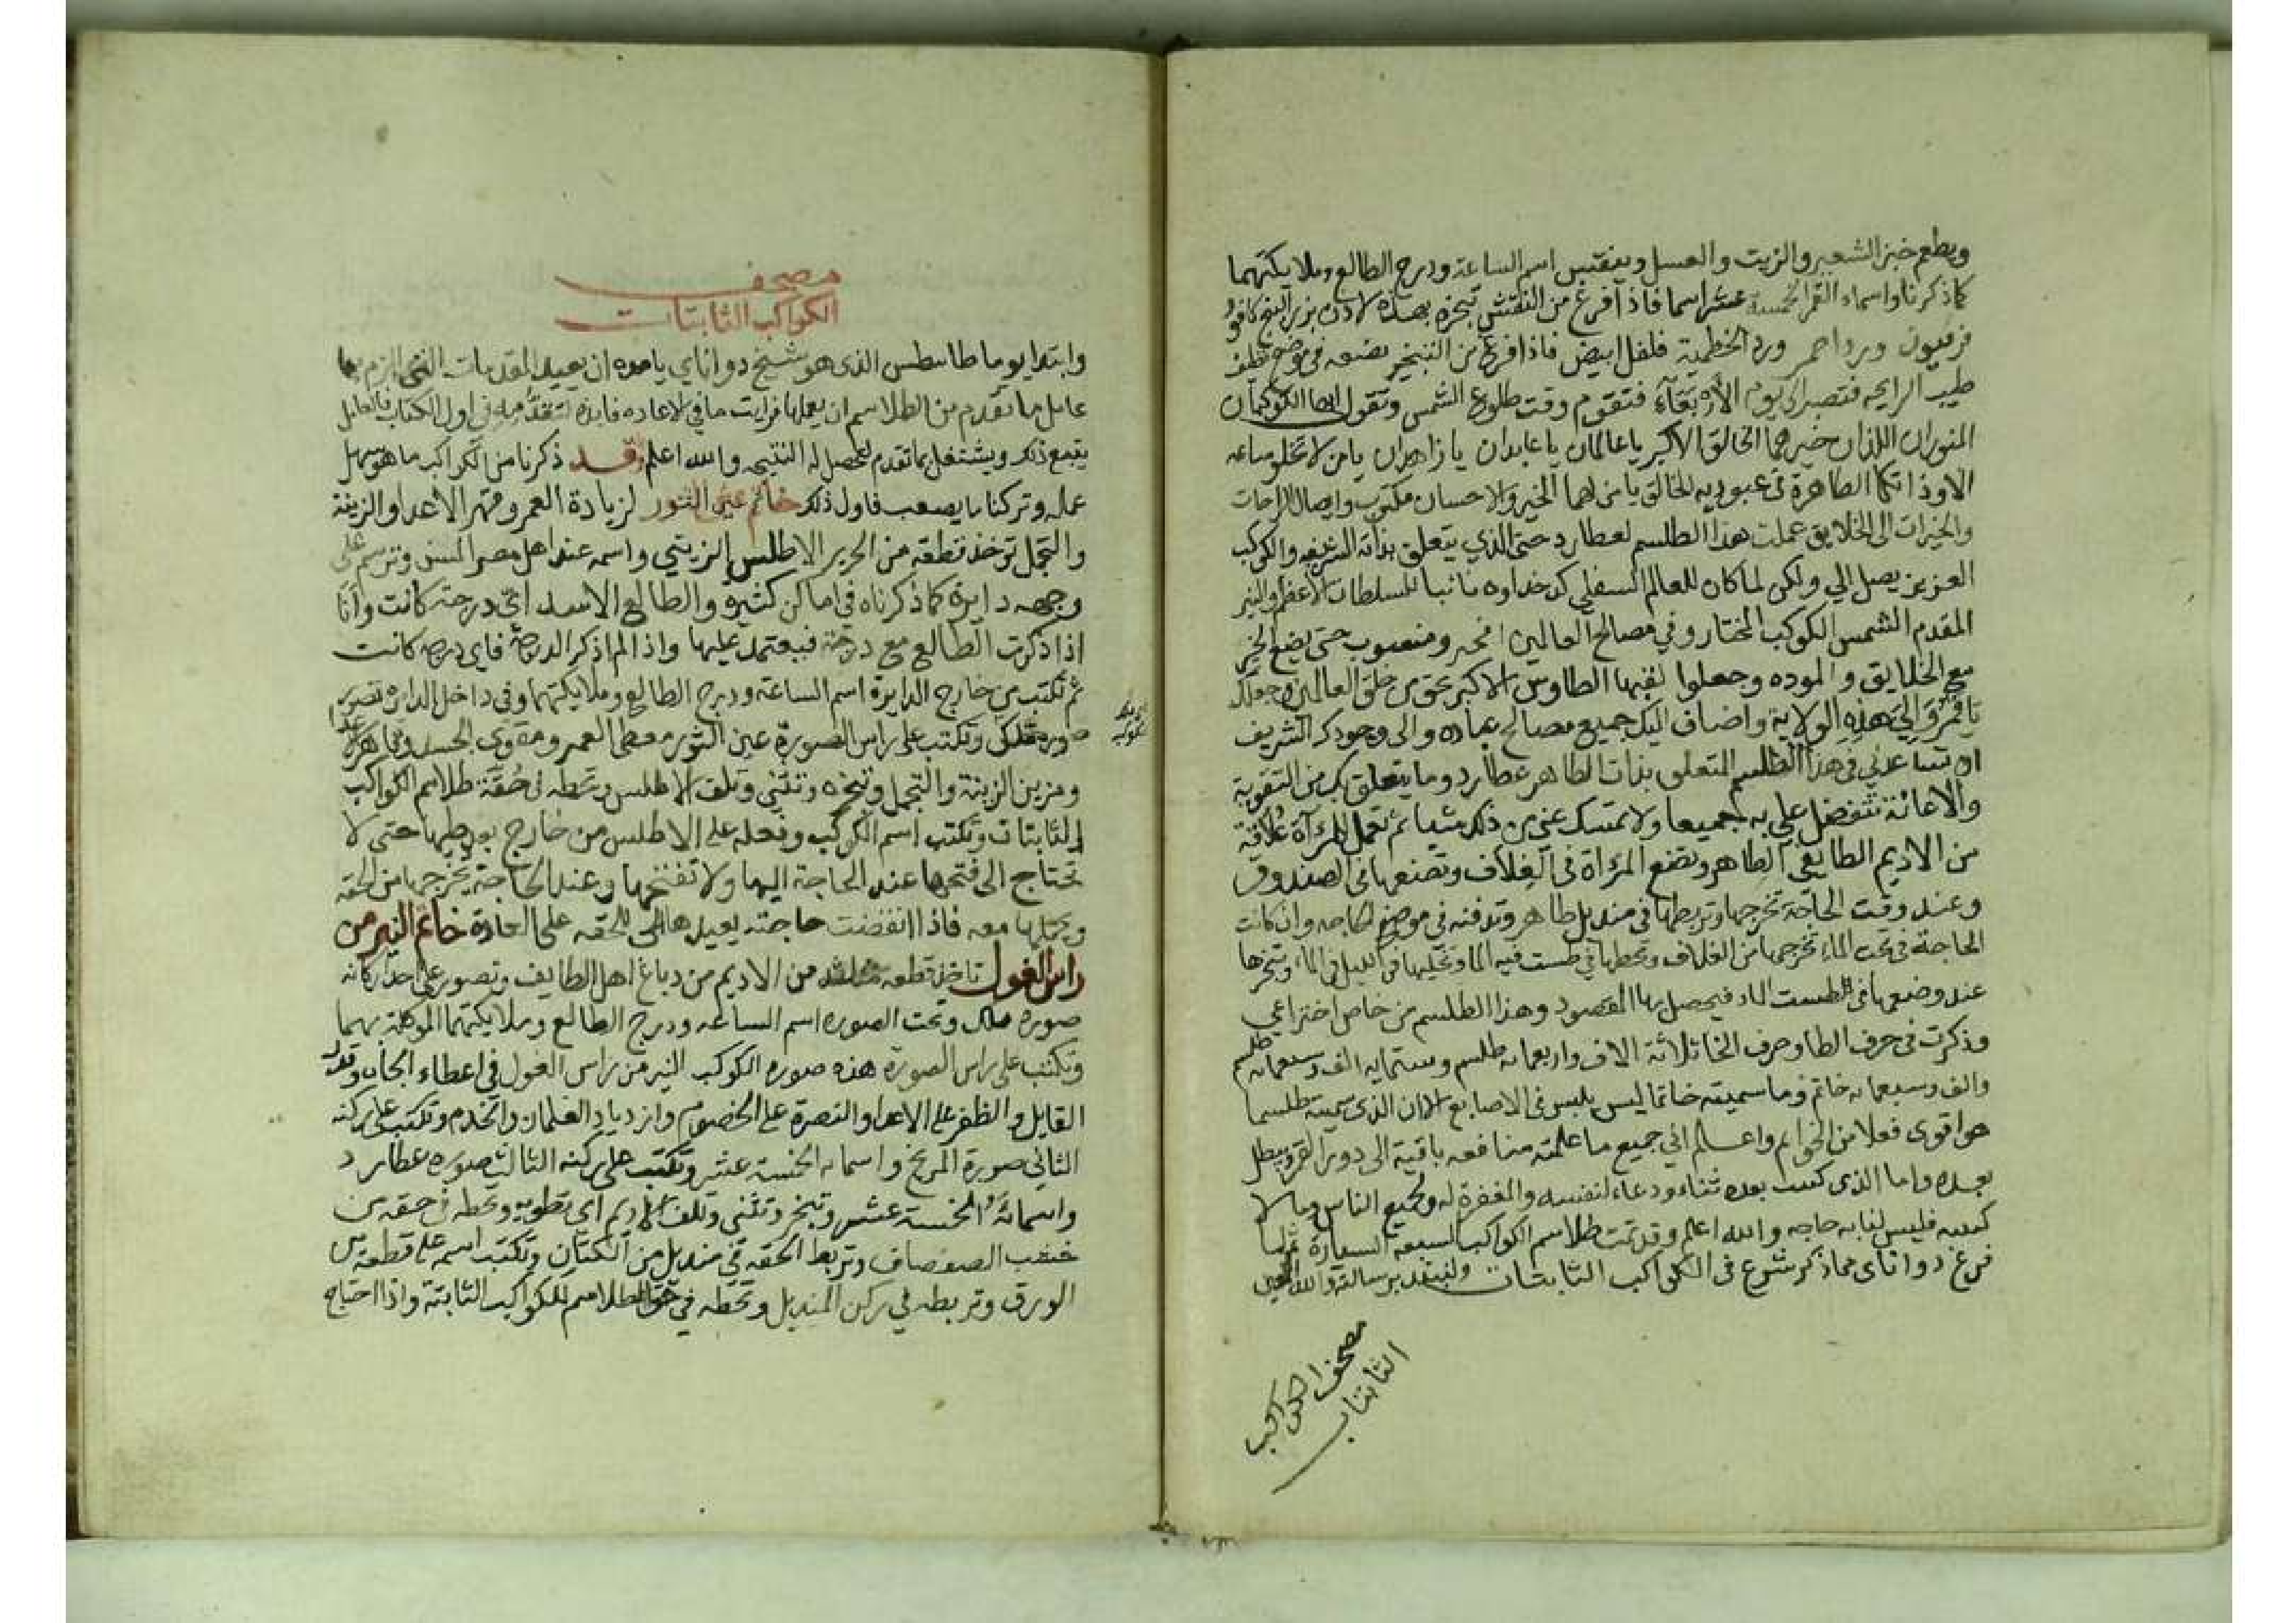 ويطعم خبز الشعير والزيت والعسل وينقش اسم الساعة ودرج الطالع وملايكتهما
كما ذكرنا واسماء القمر الخمسة عشر اسما فاذا فرغ من النقش تبخره بهذه لادن بزر البنج كافور
فربيون ورد احمر ورد الخطمية فلفل ابيض فاذا فرغ من التبخير يضعه في موضع نظيف
طيب الرايحه فتصبر الى يوم الأربعاء فتقوم وقت طلوع الشمس وتقول ايها الكوكبان
المنوران اللذان خيرهما الخالق الاكبر يا عالمان يا عابدان يا زاهدان يا من لا تخلو ساعه
الاوذاتكما الطاهرة في عبودية الخالق يا من لهما الخير والاحسان مكتوب وايصال الراحات
والخيرات الى الخلايق عملت هذا الطلسم لعطارد حتى الذي يتعلق بذاته الشريفه والكوكب
العزيز يصل الي ولكن لما كان للعالم السفلي كدخداوه نائبا للسلطان الاعظم والنير
المقدم الشمس الكوكب المختار وفي مصالح العالمين ومنصوب حتى يضع الخير
مع الخلايق والموده وجعلوا لقبها الطاوس الاكبر بحق من خلق العالمين وجعلك
يا قمر والي هذه الولاية واضاف اليك جميع مصالح عباده والى وجودك الشريف
ان تساعدني في هذا الطلسم المتعلق بذات الطاهر عطارد وما يتعلق بك من التقوية
والاعانة تتفضل علي به جميعا ولا تمسك عني من ذلك شيا ثم تعمل للمرآة غلافة
من الاديم الطايفي الطاهر وتضع المراة في الغلاف وتضعها في الصندوق
وعند وقت الحاجة تخرجها وتربطها في منديل طاهر وتدفنه في موضع الحاجه وان كانت
الحاجة في تحت الماء تخرجها من الغلاف وتحطها في طست فيه الماء وتخليها في الليل في الماء وتبخرها
عند وضعها في الطست الماء فيحصل بها المقصود وهذا الطلسم من خاص اختراعي
وذكرت في حرف الطا وحرف الخا ثلاثة الاف واربعمايه طلسم وستمايه الف وسبعمايه طلسم
والف وسبعمايه خاتم وما سميته خاتما ليس يلبس في الاصابع الان الذي سميته طلسما
هو اقوى فعلا من الخواتم واعلم اني جميع ما علمته منافعه باقية الى دور القمر ويبطل
بعده واما الذي كتب بعده ثناء ودعاء لنفسه والمغفرة له ولجميع الناس وما لا
كتبته فليس لنا به حاجه والله اعلم وقد تمت طلاسم الكواكب السبعة السيارة
فرغ دواناي مما ذكر شرع في الكواكب الثابتات ولنبتد برسالته والله المعين
مصحف الكواكب
الثابتات
مصحف
الكواكب الثابتات
وابتدا يوما طاطس الذي هو شيخ دواناي يامره ان يعيد المقدمات التي الزم بها
عامل ما تقدم من الطلاسم ان يعملها فرايت ما في الاعاده فايدة لتقدمها في اول الكتاب فالعامل
يتبع ذلك ويشتغل بما تقدم لتحصل له النتيجه والله اعلم وقد ذكرنا من الكواكب ما هو سهل
عمله وتركنا ما يصعب فاول ذلك خاتم عين الثور لزيادة العمر وقهر الاعدا والزينة
والتجمل توخذ قطعة من الحرير الاطلس الزيتي واسمه عند اهل مصر المسن وترسم على
وجهه دايرة كما ذكرناه في اماكن كثيره والطالع الاسد اي درجة كانت وانا
اذا ذكرت الطالع مع درجة فيعتمد عليها واذا لم اذكر الدرجة فاي درجه كانت
ثم تكتب من خارج الدايرة اسم الساعة ودرج الطالع وملايكتهما وفي داخل الدايره تصور
صورة ملك وتكتب على راس الصورة عين الثور معطي العمر ومقوي الجسد وقاهر الاعدا
ومزين الزينة والتجمل وتبخره وتثني وتلف الاطلس وتحطه في حقة طلاسم الكواكب
الثابتات وتكتب اسم الكوكب وفعله على الاطلس من خارج بعد طيها حتى لا
تحتاج الى فتحها عند الحاجة اليها ولا تفتحها وعند الحاجة تخرجها من الحقة
ويحملها معه فاذا انقضت حاجته يعيدها الى الحقه على العادة خاتم النير من
راس الغول تاخذ قطعه مثلثه من الاديم من دباغ اهل الطايف وتصور على احد اركانه
صورة ملك وتحت الصوره اسم الساعه ودرج الطالع وملايكتهما الموكلة بهما
وتكتب على راس الصورة هذه صوره الكوكب النير من راس الغول في اعطاء الجاه وقدر
القايل والظفر على الاعدا والنصرة على الخصوم وازدياد الغلمان والخدم وتكتب على ركنه
الثاني صورة المريخ واسمايه الخمسة عشر وتكتب على ركنه الثالث صوره عطارد
واسمائه الخمسة عشر وتبخر وتثني وتلف الاديم اي تطويه وتحطه في حقه من
خشب الصفصاف وتربط الحقه في منديل من الكتان وتكتب اسمه على قطعة من
الورق وتربطه في ركن المنديل وتحطه في حق الطلاسم للكواكب الثابتة واذا احتاج